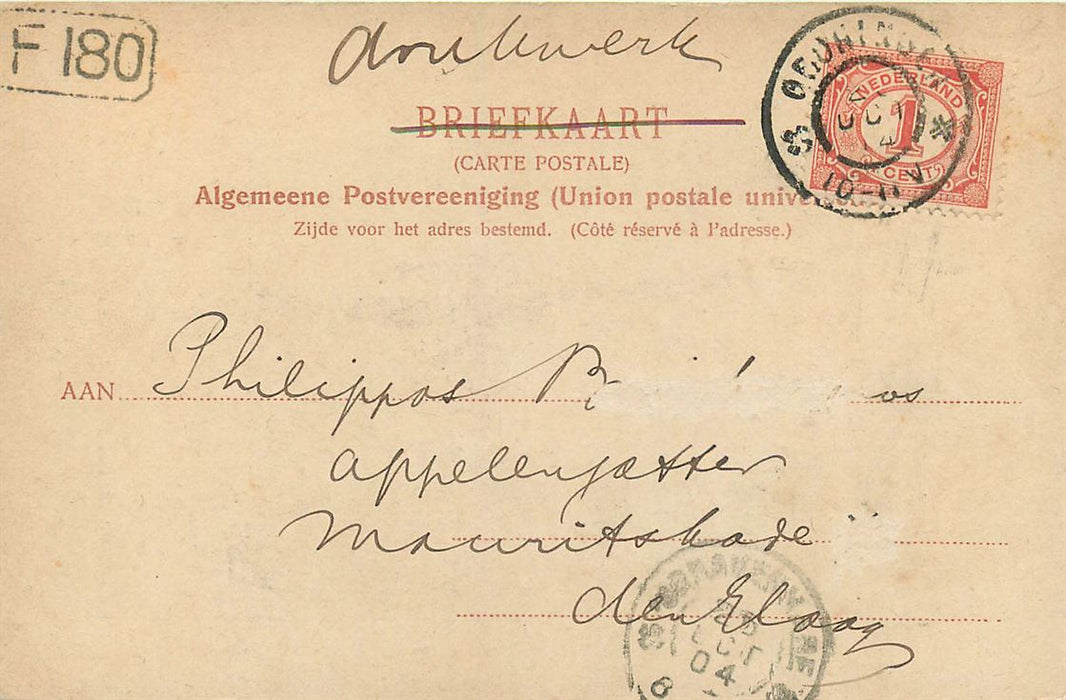 F 180
drukwerk
BRIEFKAART
(CARTE POSTALE)
Algemeene Postvereeniging (Union postale unive
Zijde voor het adres bestemd. (Côté réservé à l'adresse.)
NEDERLAND
1
CENT
OCT
10-11 N
AAN Philippos
Mauritskade
den Haag
'S-GRAVENHAGE
OCT
04